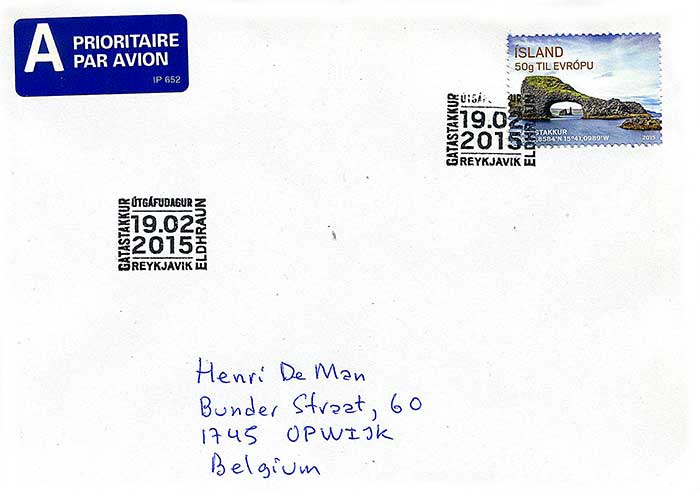 A PRIORITAIRE
PAR AVION
IP 652
ÍSLAND
50g TIL EVRÓPU
STAKKUR
8584°N 15°41,0989°W
2015
GATASTAKKUR
ÚTGÁFUDAGUR
19.02
2015
REYKJAVIK
ELDHRAUN
GATASTAKKUR
ÚTGÁFUDAGUR
19.02
2015
REYKJAVIK
ELDHRAUN
Henri De Man
Bunder Straat, 60
1745 OPWIJK
Belgium